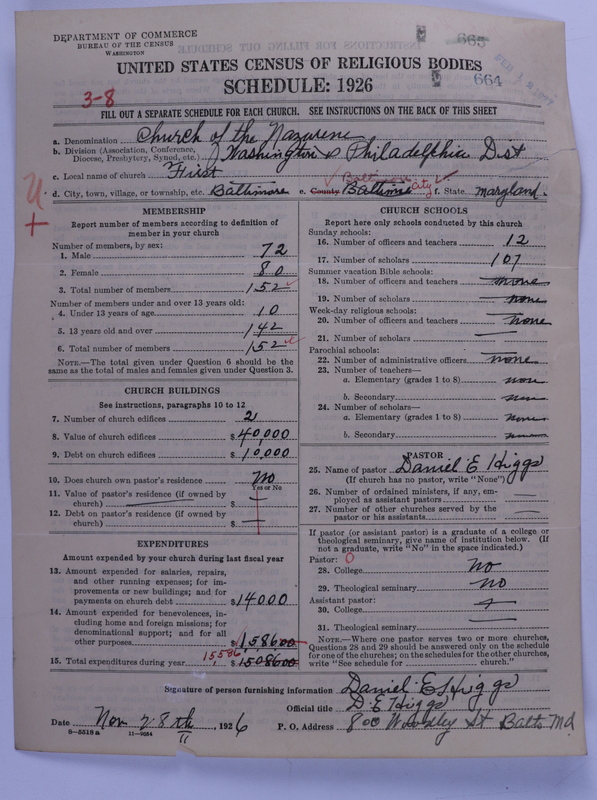 DEPARTMENT OF COMMERCE
BUREAU OF THE CENSUS
WASHINGTON
665
664
UNITED STATES CENSUS OF RELIGIOUS BODIES
SCHEDULE: 1926
3-8
FILL OUT A SEPARATE SCHEDULE FOR EACH CHURCH. SEE INSTRUCTIONS ON THE BACK OF THIS SHEET
a. Denomination Church of the Nazarene
b. Division (Association, Conference, Diocese, Presbytery, Synod, etc.) Washington & Philadelphia Dist
c. Local name of church First
d. City, town, village, or township, etc. Baltimore e. County Baltimore City f. State Maryland
MEMBERSHIP
Report number of members according to definition of
member in your church
Number of members, by sex:
1. Male 72
2. Female 80
3. Total number of members 152
Number of members under and over 13 years old:
4. Under 13 years of age 10
5. 13 years old and over 142
6. Total number of members 152
NOTE.—The total given under Question 6 should be the
same as the total of males and females given under Question 3.
CHURCH BUILDINGS
See instructions, paragraphs 10 to 12
7. Number of church edifices 2
8. Value of church edifices $40,000
9. Debt on church edifices $10,000
10. Does church own pastor's residence No
Yes or No
11. Value of pastor's residence (if owned by
church) $ —
12. Debt on pastor's residence (if owned by
church) $ —
EXPENDITURES
Amount expended by your church during last fiscal year
13. Amount expended for salaries, repairs,
and other running expenses; for im-
provements or new buildings; and for
payments on church debt $14000
14. Amount expended for benevolences, in-
cluding home and foreign missions; for
denominational support; and for all
other purposes $1,58600
15586
15. Total expenditures during year $1508600
CHURCH SCHOOLS
Report here only schools conducted by this church
Sunday schools:
16. Number of officers and teachers 12
17. Number of scholars 107
Summer vacation Bible schools:
18. Number of officers and teachers none
19. Number of scholars none
Week-day religious schools:
20. Number of officers and teachers none
21. Number of scholars —
Parochial schools:
22. Number of administrative officers none
23. Number of teachers—
a. Elementary (grades 1 to 8) none
b. Secondary none
24. Number of scholars—
a. Elementary (grades 1 to 8) none
b. Secondary none
PASTOR
25. Name of pastor Daniel E Higgs
(If church has no pastor, write "None")
26. Number of ordained ministers, if any, em-
ployed as assistant pastors —
27. Number of other churches served by the
pastor or his assistants —
If pastor (or assistant pastor) is a graduate of a college or
theological seminary, give name of institution below. (If
not a graduate, write "No" in the space indicated.)
Pastor: 0
28. College No
29. Theological seminary No
Assistant pastor:
30. College —
31. Theological seminary —
NOTE.—Where one pastor serves two or more churches,
Questions 28 and 29 should be answered only on the schedule
for one of the churches; on the schedules for the other churches,
write "See schedule for church."
Signature of person furnishing information Daniel E Higgs
Official title D. E Higgs
Date Nov 28th, 1926 P. O. Address 800 St Balto Md
11
8-5518a 11-4034